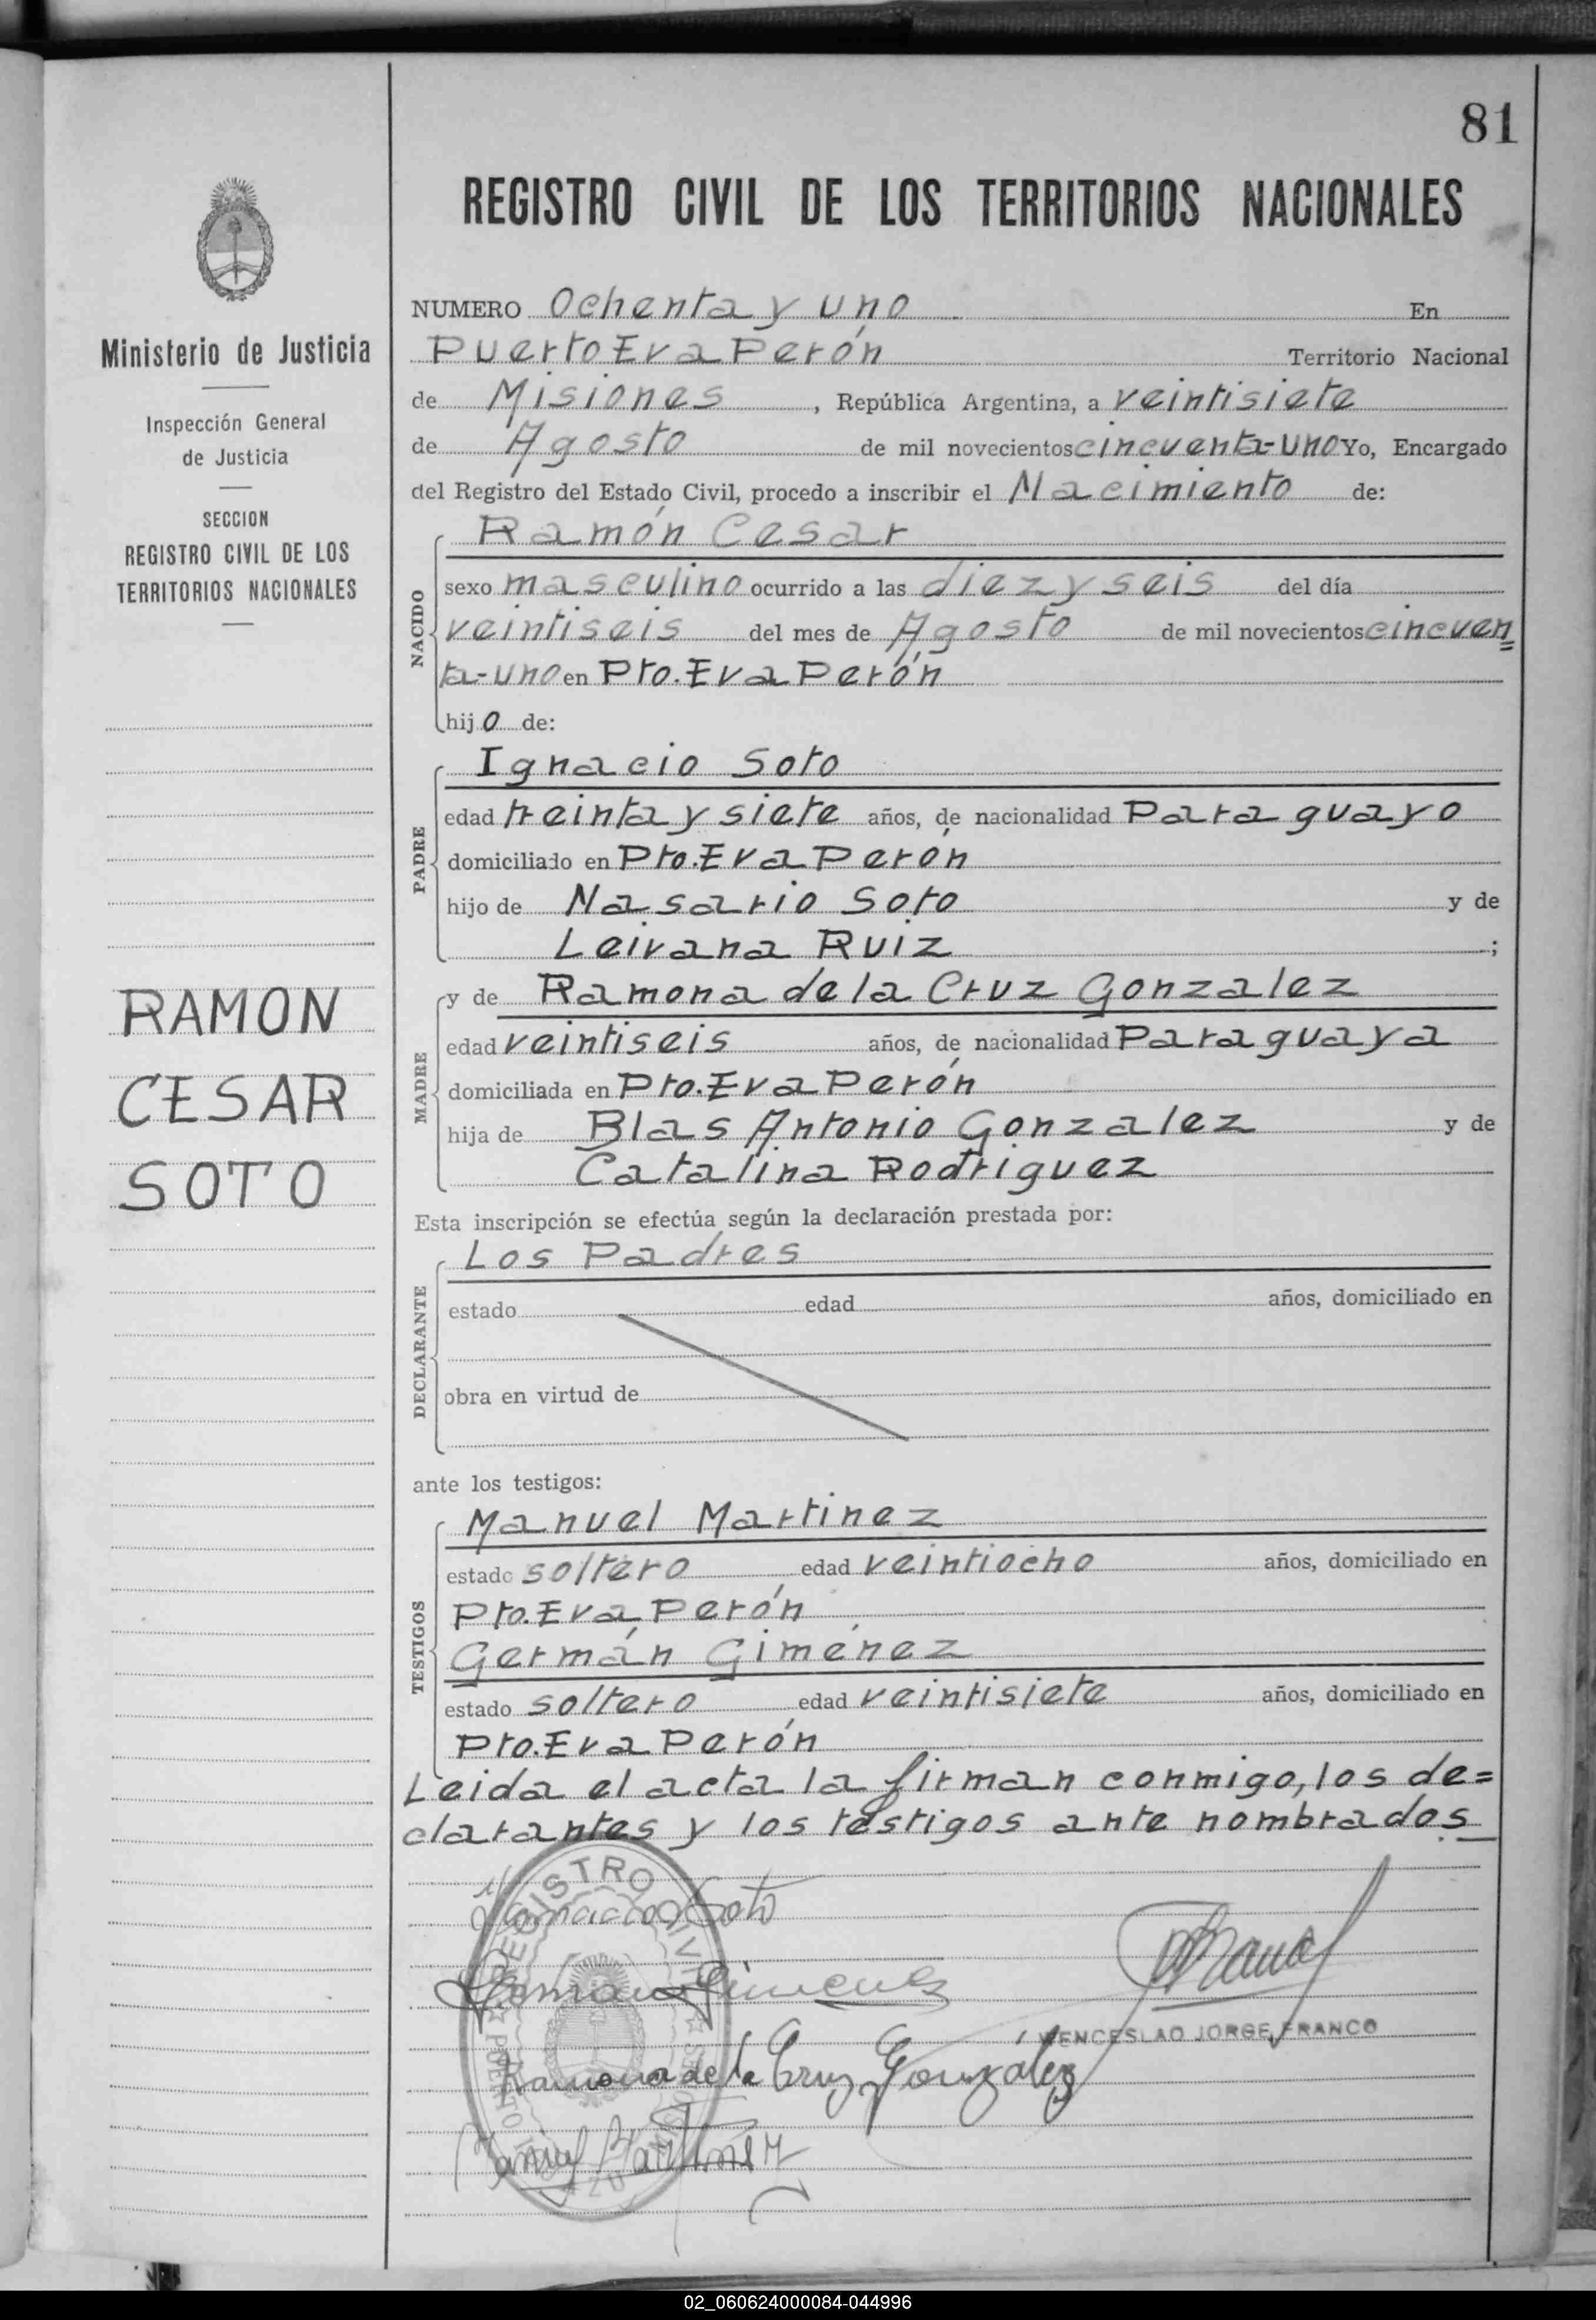 81
REGISTRO CIVIL DE LOS TERRITORIOS NACIONALES
Ministerio de Justicia
Inspección General
de Justicia
SECCION
REGISTRO CIVIL DE LOS
TERRITORIOS NACIONALES
RAMON
CESAR
SOTO
NUMERO Ochenta y uno En
Puerto Eva Perón Territorio Nacional
de Misiones, República Argentina, a veintisiete
de Agosto de mil novecientos cincuenta-uno Yo, Encargado
del Registro del Estado Civil, procedo a inscribir el Nacimiento de:
NACIDO
Ramón Cesar
sexo masculino ocurrido a las diez y seis del día
veintiseis del mes de Agosto de mil novecientos cincuen=
ta-uno en Pto. Eva Perón
hijo de:
PADRE
Ignacio Soto
edad treinta y siete años, de nacionalidad Paraguayo
domiciliado en Pto. Eva Perón
hijo de Nasario Soto y de
Leivana Ruiz;
MADRE
y de Ramona de la Cruz Gonzalez
edad veintiseis años, de nacionalidad Paraguaya
domiciliada en Pto. Eva Perón
hija de Blas Antonio Gonzalez y de
Catalina Rodriguez
Esta inscripción se efectúa según la declaración prestada por:
DECLARANTE
Los Padres
estado edad años, domiciliado en
obra en virtud de
ante los testigos:
TESTIGOS
Manuel Martinez
estado soltero edad veintiocho años, domiciliado en
Pto. Eva Perón
Germán Giménez
estado soltero edad veintisiete años, domiciliado en
Pto. Eva Perón
Leida el acta la firman conmigo, los de=
clarantes y los testigos ante nombrados
REGISTRO CIVIL
PUERTO
Ignacio Soto
German Gimenez
WENCESLAO JORGE FRANCO
Ramona de la Cruz González
Manuel Martinez
02_060624000084-044996